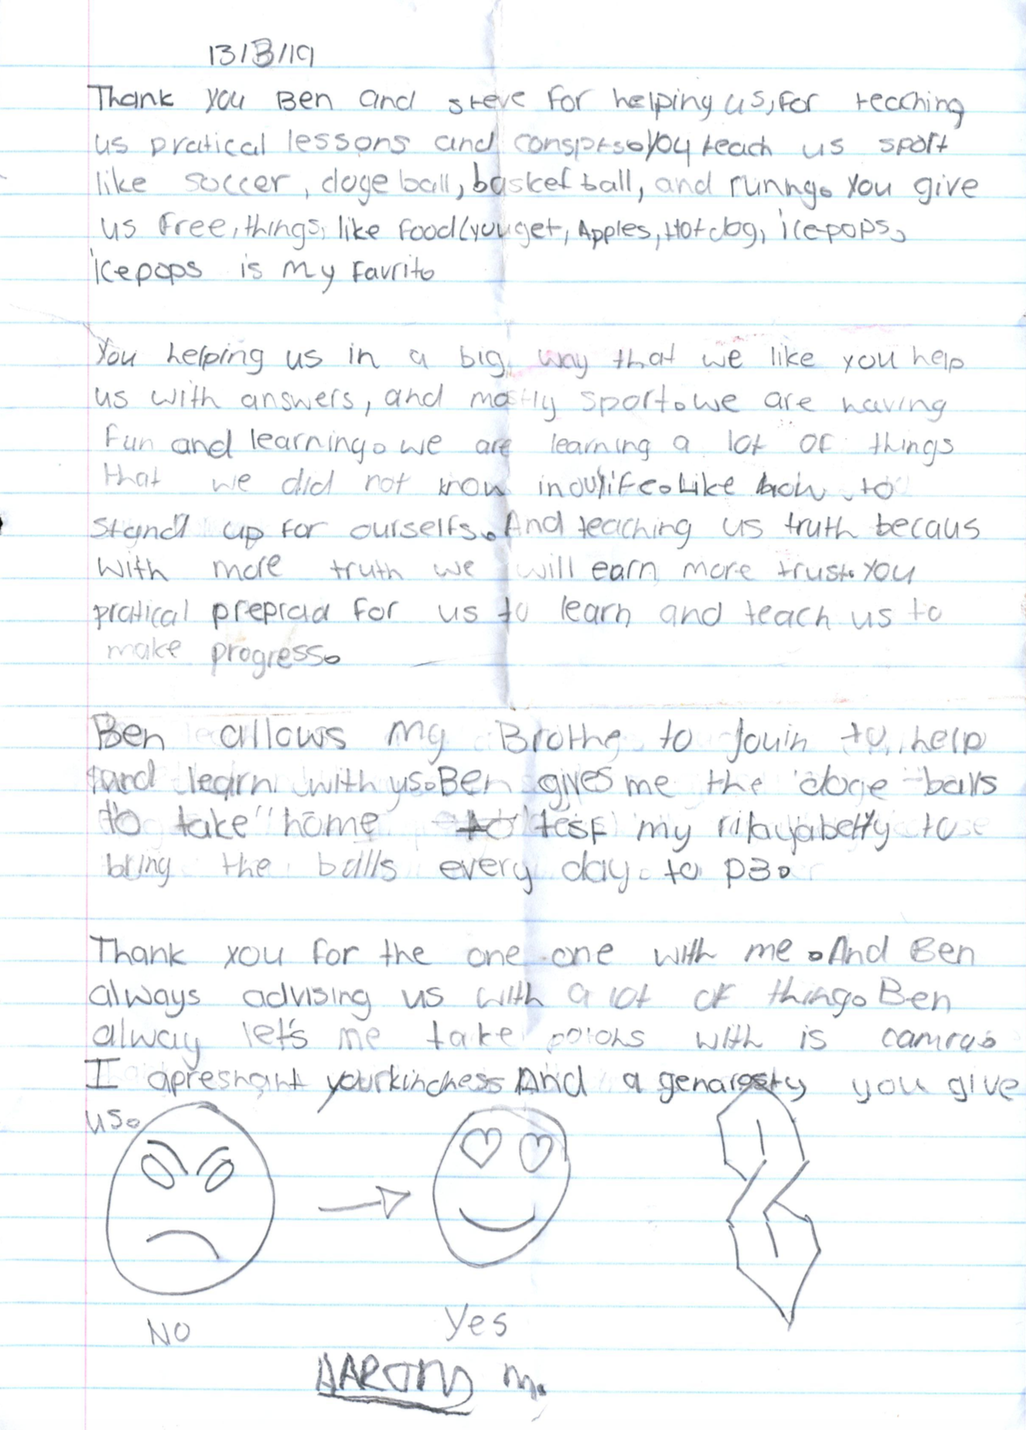 13/3/19
Thank you Ben and steve for helping us, for teaching
us pratical lessons and conspts. you teach us sport
like soccer, doge ball, basket ball, and runng. You give
us free, things, like food (you get, Apples, Hot dog, ice pops,
ice pops is my favrito
You helping us in a big way that we like you help
us with answers, and mostly sport. we are having
fun and learning. we are learning a lot of things
that we did not know in ouy life. Like how to
stand up for ourselfs. And teaching us truth becaus
with more truth we will earn more trust. You
pratical preprad for us to learn and teach us to
make progress.
Ben allows my Brothe to jouin to help
and learn with us. Ben gives me the doge balls
to take home to test my to
bring the balls every day to p3.
Thank you for the one one with me. And Ben
always advising us with a lot of thing. Ben
alway let's me take with is camra.
I apreshant your kindness And a genarosty you give
us.
NO
Yes
AARON M.